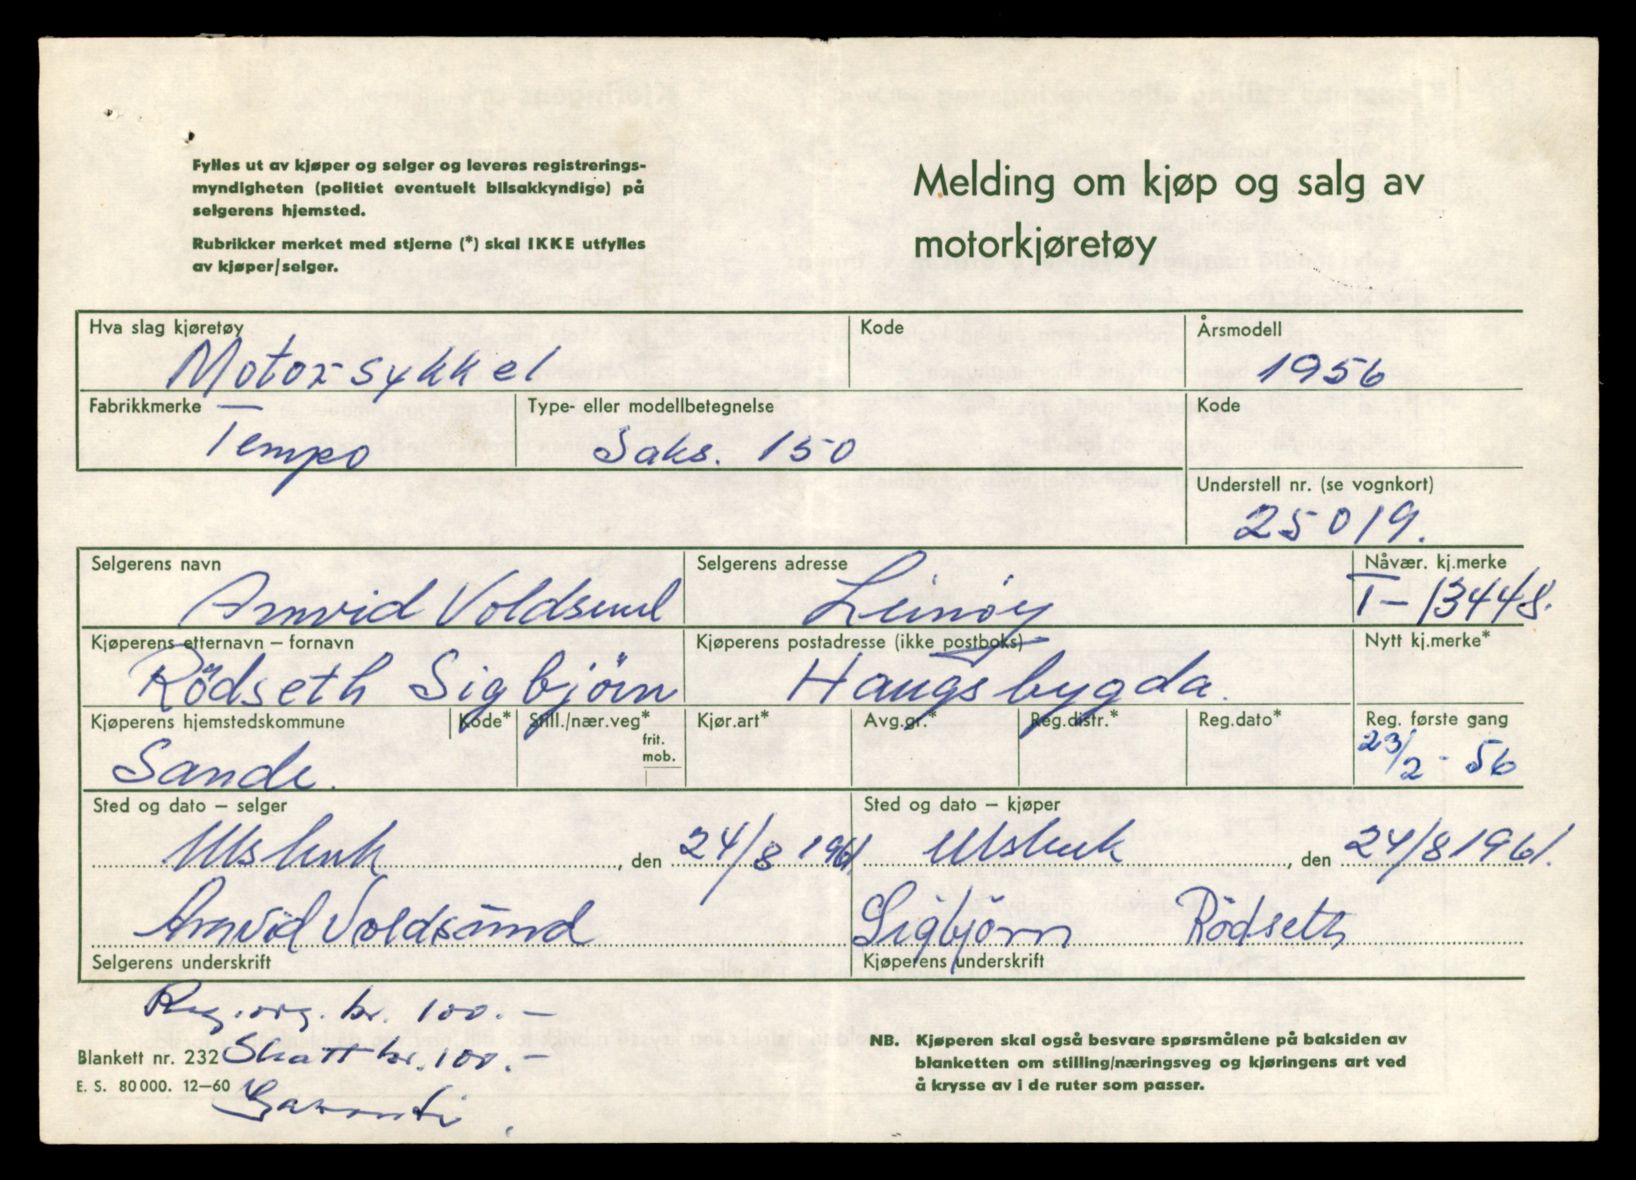 Fylles ut av kjøper og selger og leveres registrerings-
myndigheten (politiet eventuelt bilsakkyndige) på
selgerens hjemsted.
Rubrikker merket med stjerne (*) skal IKKE utfylles
av kjøper/selger.
Melding om kjøp og salg av
motorkjøretøy
Hva slag kjøretøy
Motorsykkel
Kode
Årsmodell
1956
Fabrikkmerke
Tempo
Type- eller modellbetegnelse
Saks. 150
Kode
Understell nr. (se vognkort)
25019.
Selgerens navn
Arnvid Voldsund
Selgerens adresse
Leinøy
Nåvær. kj.merke
T-13448.
Kjøperens etternavn – fornavn
Rödseth Sigbjörn
Kjøperens postadresse (ikke postboks)
Haugsbygda.
Nytt kj.merke*
Kjøperens hjemstedskommune
Sande.
Kode*
Still./nær.veg*
frit.
mob.
Kjør.art*
Avg.gr.*
Reg.distr.*
Reg.dato*
Reg. første gang
23/2-56
Sted og dato – selger
Ulstenvik, den 24/8 1961
Sted og dato – kjøper
Ulstenvik, den 24/8 1961.
Arnvid Voldsund
Selgerens underskrift
Sigbjörn Rödseth
Kjøperens underskrift
Reg.avg. kr. 100.-
Blankett nr. 232 Skatt kr. 100.-
E. S. 80 000. 12–60 Garanti.
NB. Kjøperen skal også besvare spørsmålene på baksiden av
blanketten om stilling/næringsveg og kjøringens art ved
å krysse av i de ruter som passer.